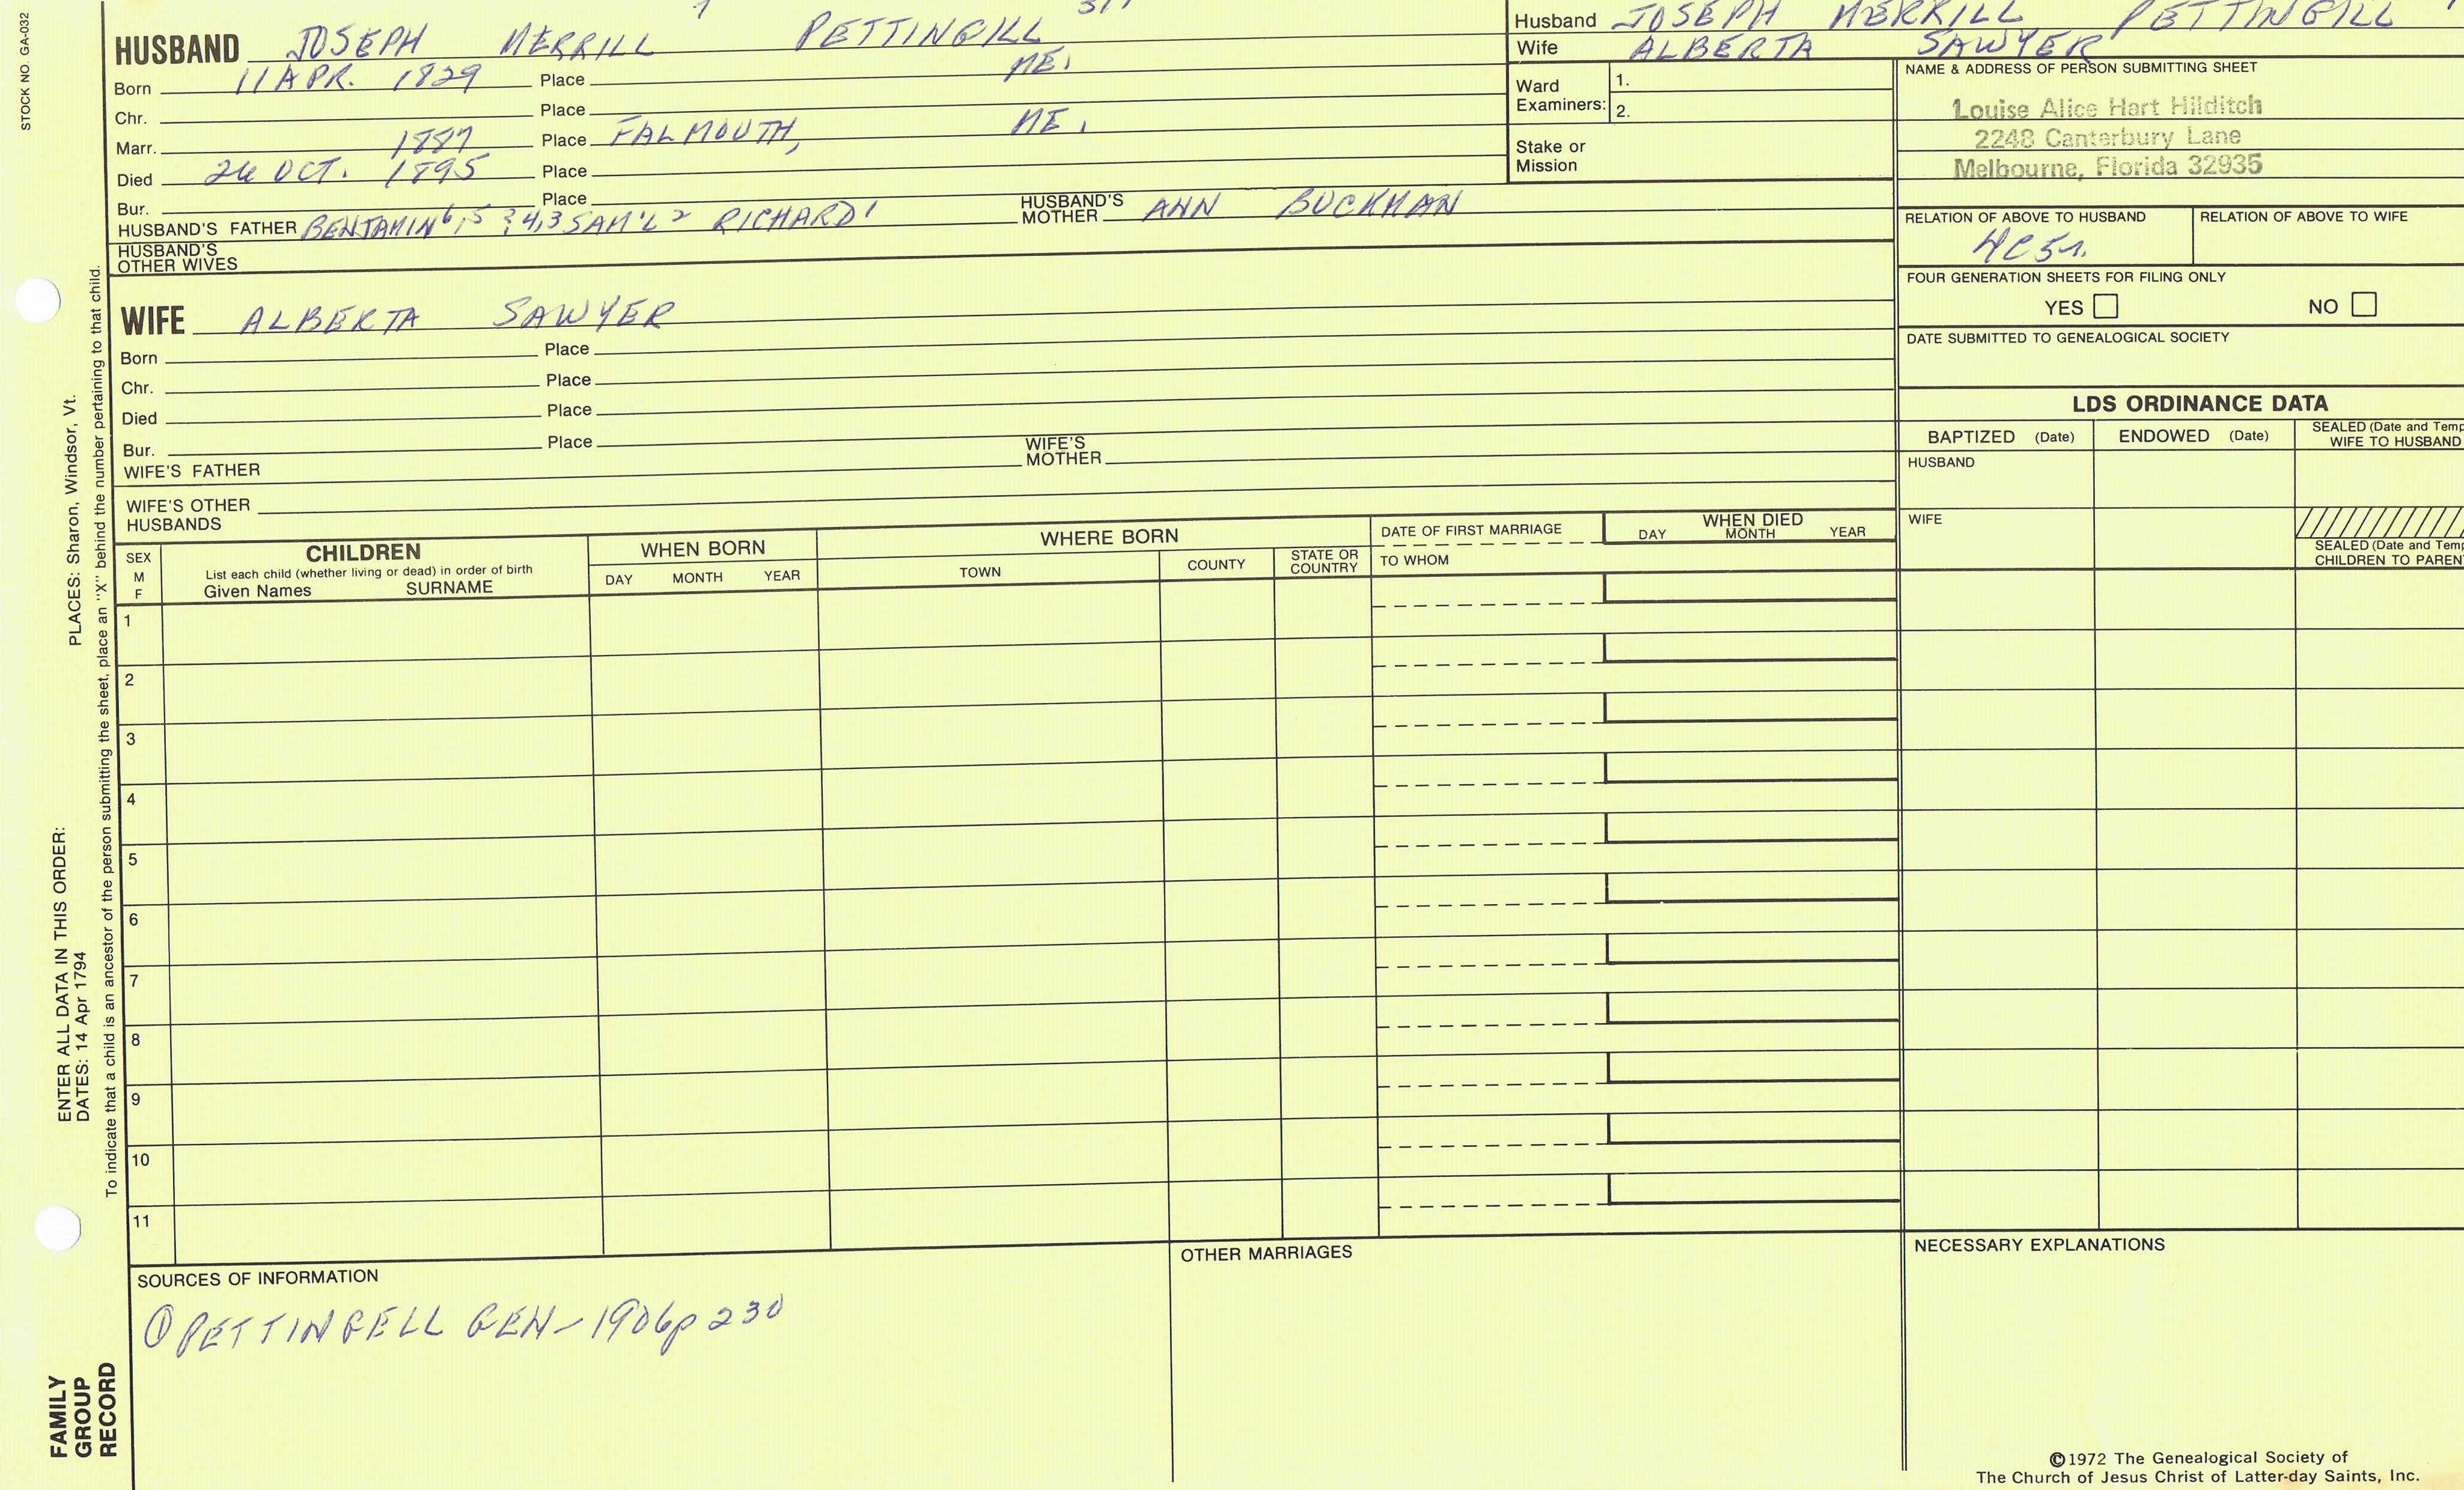 STOCK NO. GA-032
HUSBAND JOSEPH MERRILL 7 PETTINGILL
Born 11 APR. 1829 Place ME.
Chr. Place
Marr. 1887 Place FALMOUTH, ME.
Died 26 OCT. 1895 Place
Bur. Place
HUSBAND'S FATHER BENJAMIN 6,5 ?4,3 SAM'L 2 RICHARD 1 HUSBAND'S MOTHER ANN BUCKMAN
HUSBAND'S OTHER WIVES
Husband JOSEPH MERRILL PETTINGILL
Wife ALBERTA SAWYER
Ward Examiners: 1.
2.
Stake or Mission
NAME & ADDRESS OF PERSON SUBMITTING SHEET
Louise Alice Hart Hilditch
2248 Canterbury Lane
Melbourne, Florida 32935
RELATION OF ABOVE TO HUSBAND RELATION OF ABOVE TO WIFE
4C5r.
FOUR GENERATION SHEETS FOR FILING ONLY
YES NO
DATE SUBMITTED TO GENEALOGICAL SOCIETY
WIFE ALBERTA SAWYER
Born Place
Chr. Place
Died Place
Bur. Place
WIFE'S FATHER WIFE'S MOTHER
WIFE'S OTHER HUSBANDS
LDS ORDINANCE DATA
BAPTIZED (Date) ENDOWED (Date) SEALED (Date and Temp
WIFE TO HUSBAND
HUSBAND
WIFE
SEALED (Date and Temp
CHILDREN TO PAREN
SEX
M
F
CHILDREN
List each child (whether living or dead) in order of birth
Given Names SURNAME
WHEN BORN
DAY MONTH YEAR
WHERE BORN
TOWN COUNTY STATE OR COUNTRY
DATE OF FIRST MARRIAGE
TO WHOM
WHEN DIED
DAY MONTH YEAR
1
2
3
4
5
6
7
8
9
10
11
SOURCES OF INFORMATION
① PETTINGELL GEN - 1906 p 230
OTHER MARRIAGES
NECESSARY EXPLANATIONS
©1972 The Genealogical Society of
The Church of Jesus Christ of Latter-day Saints, Inc.
ENTER ALL DATA IN THIS ORDER:
DATES: 14 Apr 1794 PLACES: Sharon, Windsor, Vt.
To indicate that a child is an ancestor of the person submitting the sheet, place an "X" behind the number pertaining to that child.
FAMILY
GROUP
RECORD